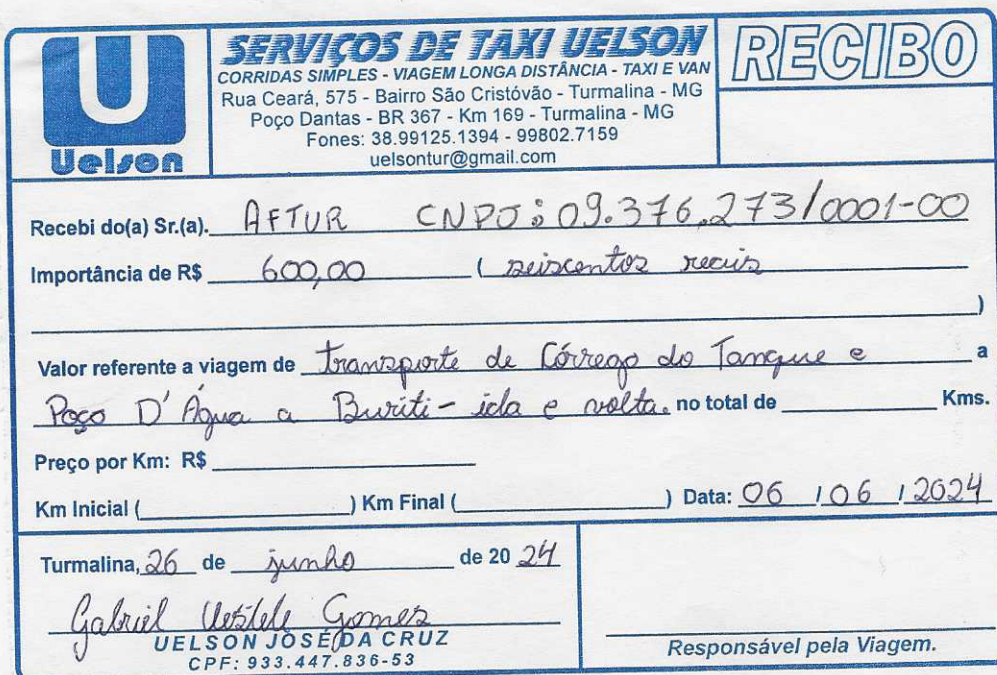 U
Uelson
SERVIÇOS DE TAXI UELSON
CORRIDAS SIMPLES - VIAGEM LONGA DISTÂNCIA - TAXI E VAN
Rua Ceará, 575 - Bairro São Cristóvão - Turmalina - MG
Poço Dantas - BR 367 - Km 169 - Turmalina - MG
Fones: 38.99125.1394 - 99802.7159
uelsontur@gmail.com
RECIBO
Recebi do(a) Sr.(a). AFTUR CNPJ: 09.376.273/0001-00
Importância de R$ 600,00 ( seiscentos reais
)
Valor referente a viagem de transporte de Córrego do Tanque e a
Poço D'Água a Buriti - ida e volta. no total de Kms.
Preço por Km: R$
Km Inicial ( ) Km Final ( ) Data: 06 / 06 / 2024
Turmalina, 26 de junho de 20 24
Gabriel Gomes
UELSON JOSÉ DA CRUZ
CPF: 933.447.836-53
Responsável pela Viagem.